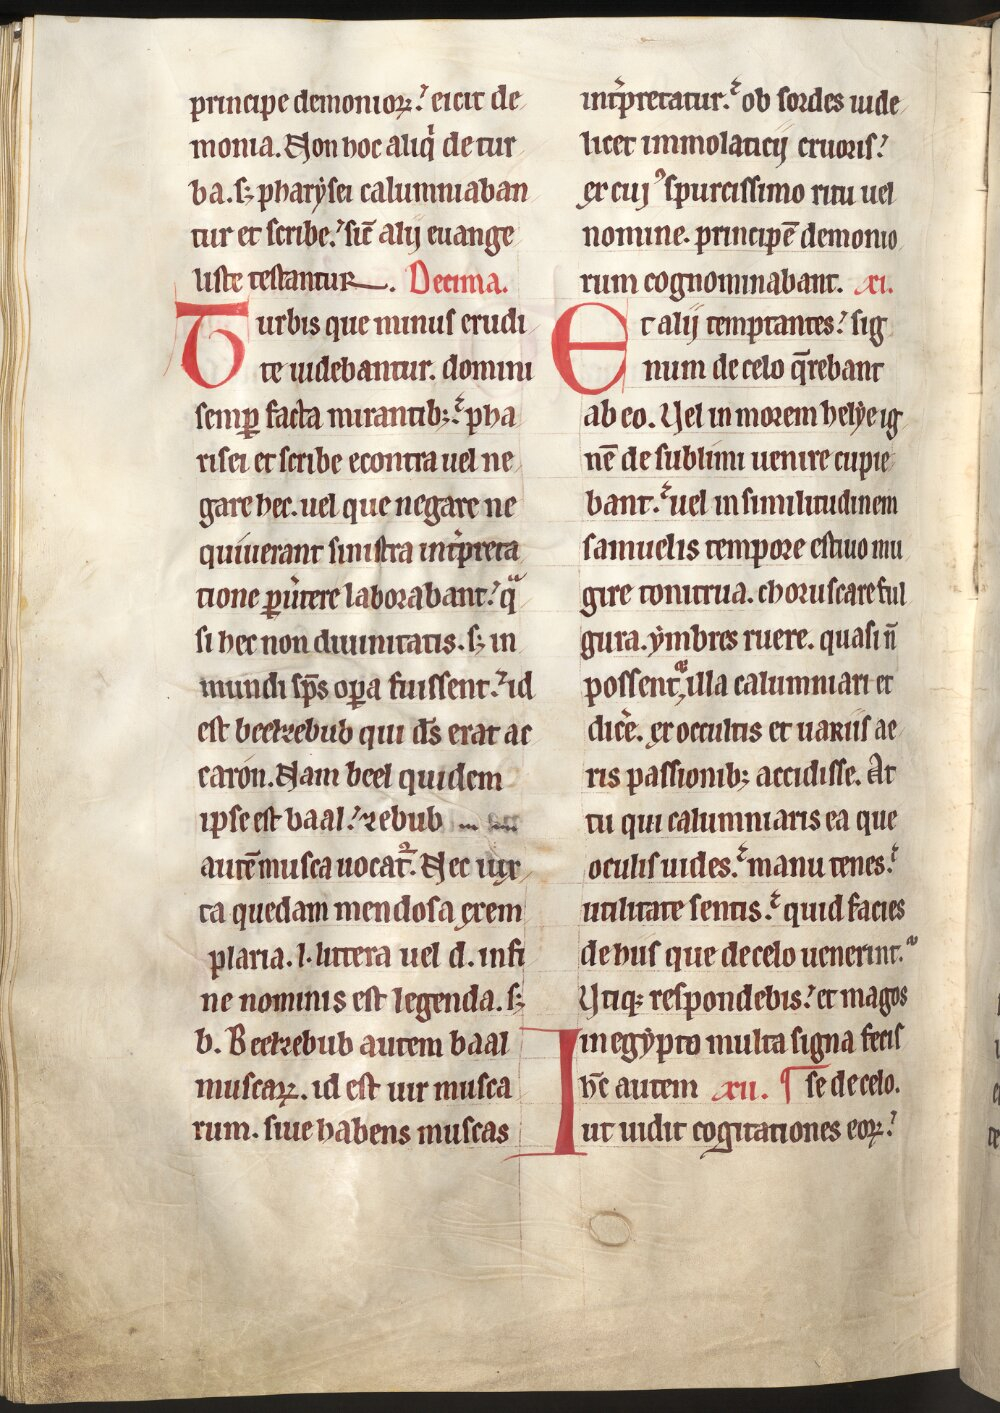 principe demonioꝝ. eicit de
monia. Non hoc aliq̇ de tur
ba. sꝫ pharẏsei calumniaban
tur et scribe. sic̄ alij euange
liste testantur. Decima.
Turbis que minus erudi
te uidebantur. domini
semꝑ facta mirantibꝫ. pha
risei et scribe econtra uel ne
gare hec. uel que negare ne
quiuerant sinistra int̓preta
tione ꝑu̓tere laborabant. qͣ
si hec non diuinitatis. sꝫ in
mundi sp̄s oꝑa fuissent. id
est beelzebub qui d̄s erat ac
caron. Nam beel quidem
ipse est baal. zebub
autē musca uocat᷑. Nec iux
ta quedam mendosa exem
plaria. l. littera uel d. in fi
ne nominis est legenda. sꝫ
b. Beelzebub autem baal
muscaꝝ. id est uir musca
rum. siue habens muscas
int̓pretatur. ob sordes uide
licet immolaticij cruoris.
ex cuiꝰ spurcissimo ritu uel
nomine. principē demonio
rum cognominabant. xi.
Et alij temptantes. sig
num de celo q̄rebant
ab eo. Uel in morem helẏe ig
nē de sublimi uenire cupie
bant. uel in similitudinem
samuelis tempore estiuo mu
gire tonitrua. choruscare ful
gura. ẏmbres ruere. quasi n̄
possent illa calumniari et
dic̓e. ex occultis et uariis ae
ris passionibꝫ accidisse. At
tu qui calumniaris ea que
oculis uides. manu tenes.
utilitate sentis. quid facies
de hiis que de celo uenerint.
Utiqꝫ respondebis. et magos
in egẏpto multa signa fecis
h̄c autem xii. ¶ se de celo.
Iut uidit cogitationes eoꝝ.